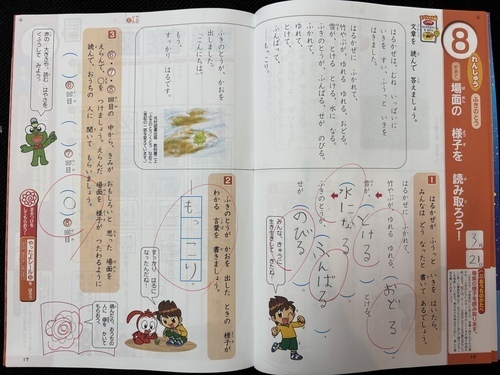 8
れんしゅう
ふきのとう
場面の 様子を 読み取ろう！
3月
21日
文章を 読んで 答えましょう。
はるかぜは、むね いっぱいに
いきを すい、ふうっと いきを
はきました。
はるかぜに ふかれて、
竹やぶが、ゆれる ゆれる、おどる。
雪が、とける とける、水に なる。
ふきのとうが、ふんばる、せが のびる。
ふかれて、
ゆれて、
とけて、
ふんばって、
―もっこり。
ふきのとうが、かおを
出しました。
「こんにちは。」
もう、
すっかり はるです。
1
はるかぜが ふうっと いきを はいたら、
みんなは どう なると 書いて あるでしょう。
はるかぜに ふかれて、
竹やぶが、ゆれる ゆれる、(おどる)。
雪が、(とける) とける、
(水になる)。
ふきのとうが、(ふんばる)、
せが (のびる)。
2
ふきのとうが かおを 出した ときの 様子が
わかる 言葉を 書きましょう。
もっこり
3
⑥・⑦・⑧回目の 中から、きみが おもしろいと 思った 場面を
えらんで、○を つけましょう。えらんだ 場面の 様子が つたわるように
読んで、おうちの 人に 聞いて もらいましょう。
( )⑥回目
( )⑦回目
(○)⑧回目
声の 大きさや、読む はやさを
くふうして みよう。
17
16